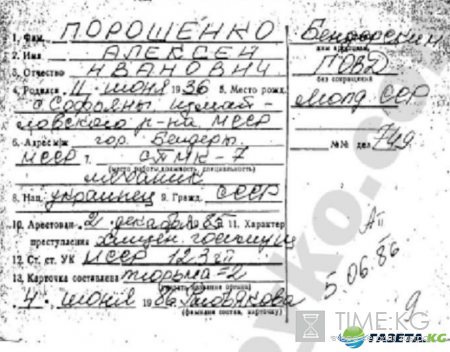 1. Фам. ПОРОШЕНКО Бендерским
2. Имя АЛЕКСЕЙ
3. Отчество ИВАНОВИЧ ПОВД
без сокращения
4. Родился 11 июня 1936 5. Место рожд.
с Софояны Измаи- молд ССР
ловского р-на МССР
6. Адрес м/ж гор. Бендеры №№ дел 749
МССР 7. СПМК-7
(место работы, должность, специальность)
механик
8. Нац. украинец 9. Гражд. СССР
10. Арестован 2 декабря 85 11. Характер
преступления хищен. госимущ
12. Ст. ст. УК МССР 123
13. Карточка составлена тюрьма-2
5.06.86
4. июня 1986
(фамилия состав. карточку)
9
TIME.KG
ГАЗЕТА.KG